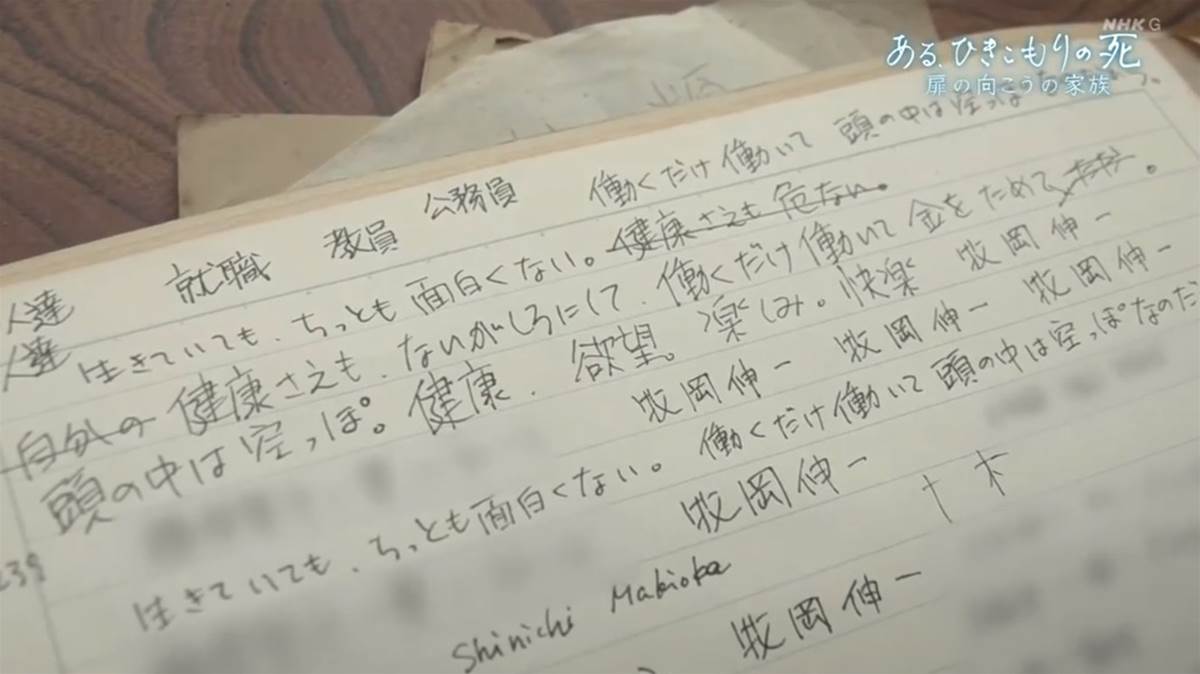 NHK G
ある、ひきこもりの死
扉の向こうの家族
就職 教員 公務員 働くだけ働いて 頭の中は空っぽ
人達 生きていても、ちっとも面白くない。健康さえも危ない。
人達
自分の健康さえも、ないがしろにして、働くだけ働いて金をためて
頭の中は空っぽ。健康、欲望。楽しみ。快楽 牧岡伸一
牧岡伸一 牧岡伸一 牧岡伸一
生きていても、ちっとも面白くない。働くだけ働いて頭の中は空っぽなのだ
239
牧岡伸一 十 木
Shinichi Makioka
牧岡伸一